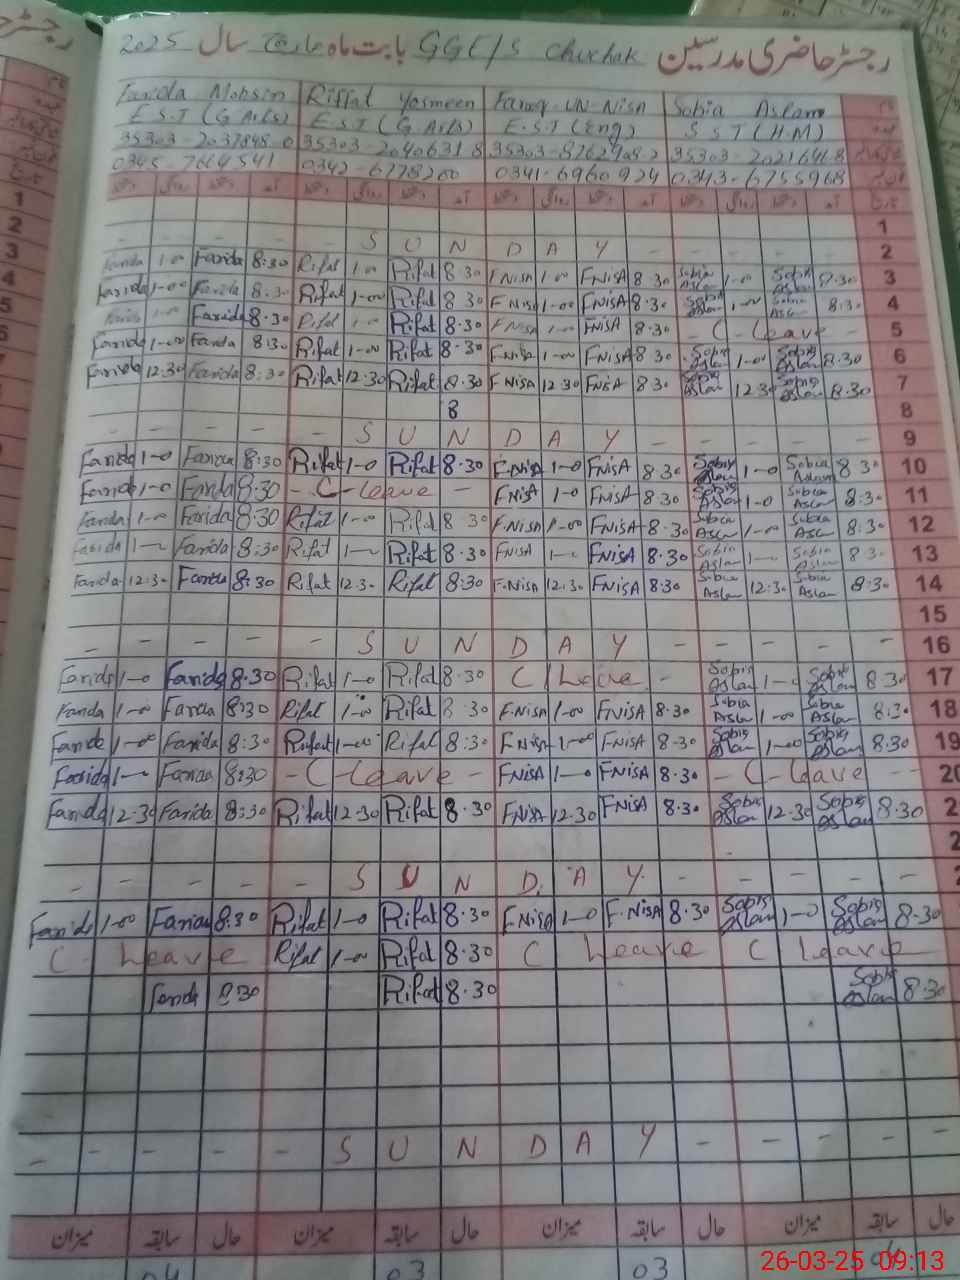 رجسٹر حاضری مدرسین GGE/S Chuchak بابت ماہ مارچ سال 2025
Farida Mohsin Riffat Yasmeen Faroq-UN-Nisa Sobia Aslam
E.S.T (G Arts) E.S.T (G Arts) E.S.T (Eng) S.S.T (H.M)
0345-7664541 0342-6778200 0341-6960924 0343-6755968
1
- - - - - S U N D A Y - - - - - 2
Farida 1-00 Farida 8:30 Rifat 1-00 Rifat 8.30 FNISA 1-00 FNISA 8.30 Sobia Aslam 1-0 Sobia Aslam 8.30 3
Farida 1-00 Farida 8:30 Rifat 1-00 Rifat 8.30 FNISA 1-00 FNISA 8.30 Sobia Aslam 1-00 Sobia Aslam 8:30 4
Farida 1-0 Farida 8.30 Rifat 1-0 Rifat 8.30 FNISA 1-0 FNISA 8.30 - C-Leave - 5
Farida 1-00 Farida 8:30 Rifat 1-00 Rifat 8.30 FNISA 1-00 FNISA 8.30 Sobia Aslam 1-00 Sobia Aslam 8.30 6
Farida 12.30 Farida 8:30 Rifat 12.30 Rifat 8.30 FNISA 12.30 FNISA 8.30 Sobia Aslam 12.30 Sobia Aslam 8.30 7
8 8
- - - - - S U N D A Y - - - - - 9
Farida 1-0 Farida 8:30 Rifat 1-0 Rifat 8.30 FNISA 1-0 FNISA 8.30 Sobia Aslam 1-0 Sobia Aslam 8.30 10
Farida 1-0 Farida 8:30 - C-Leave - FNISA 1-0 FNISA 8.30 Sobia Aslam 1-0 Sobia Aslam 8:30 11
Farida 1-00 Farida 8:30 Rifat 1-00 Rifat 8.30 FNISA 1-00 FNISA 8.30 Sobia Aslam 1-00 Sobia Aslam 8:30 12
Farida 1- Farida 8:30 Rifat 1- Rifat 8.30 FNISA 1- FNISA 8.30 Sobia Aslam 1- Sobia Aslam 8.30 13
Farida 12:30 Farida 8:30 Rifat 12.30 Rifat 8:30 F-NISA 12.30 FNISA 8.30 Sobia Aslam 12:30 Sobia Aslam 8:30 14
15
- - - - - S U N D A Y - - - - - 16
Farida 1-0 Farida 8.30 Rifat 1-0 Rifat 8.30 C Leave - Sobia Aslam 1- Sobia Aslam 8.30 17
Farida 1-00 Farida 8:30 Rifat 1-00 Rifat 8.30 F-NISA 1-00 FNISA 8.30 Sobia Aslam 1-00 Sobia Aslam 8:30 18
Farida 1-00 Farida 8:30 Rifat 1-00 Rifat 8:30 FNISA 1-00 FNISA 8-30 Sobia Aslam 1-00 Sobia Aslam 8.30 19
Farida 1- Farida 8:30 - C-Leave - FNISA 1-0 FNISA 8.30 - C-Leave - - 20
Farida 12.30 Farida 8:30 Rifat 12.30 Rifat 8.30 FNISA 12.30 FNISA 8.30 Sobia Aslam 12.30 Sobia Aslam 8.30 2
2
- - - - - S U N D A Y - - - - -
Farida 1-00 Farida 8.30 Rifat 1-0 Rifat 8.30 FNISA 1-0 F.NISA 8.30 Sobia Aslam 1-0 Sobia Aslam 8-30
C - Leave Rifat 1-00 Rifat 8.30 C Leave C Leave
Farida 8:30 Rifat 8.30 Sobia Aslam 8.30
- - - - - S U N D A Y - - - - -
میزان سابقہ حال میزان سابقہ حال میزان سابقہ حال میزان سابقہ حال
04 03 03 04
26-03-25 09:13